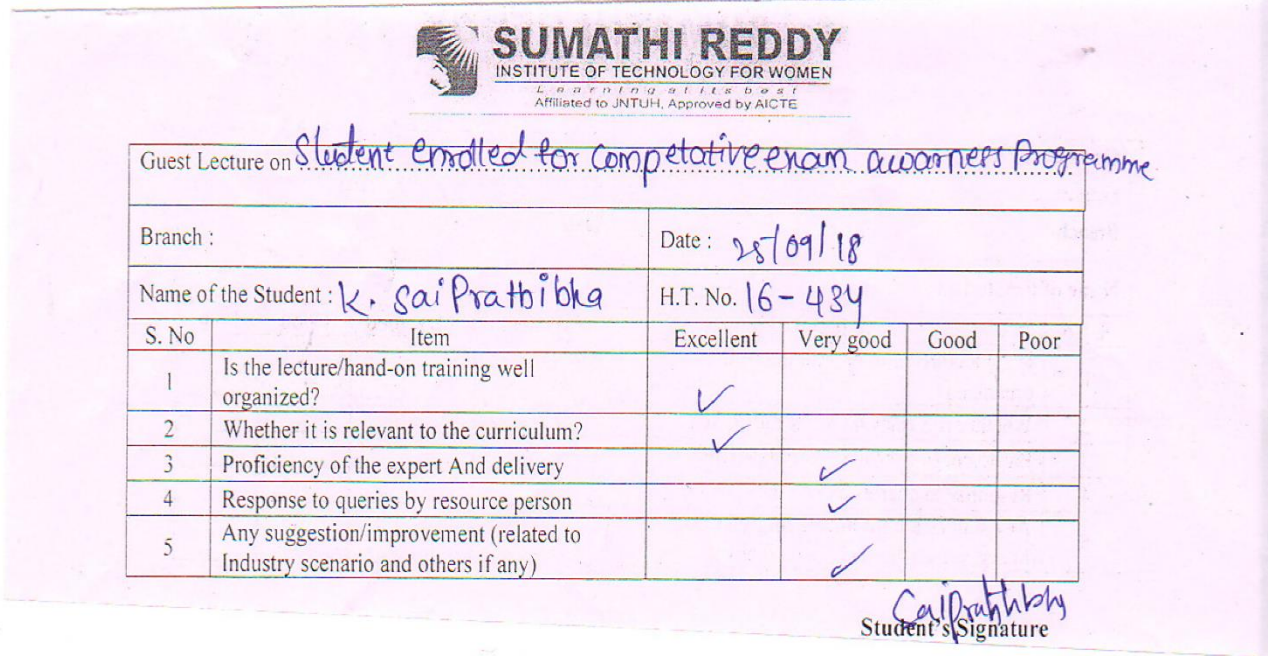 SUMATHI REDDY
INSTITUTE OF TECHNOLOGY FOR WOMEN
Learning at its best
Affiliated to JNTUH, Approved by AICTE
Guest Lecture on Student enrolled for competative exam awarness Programme
Branch : Date : 25/09/18
Name of the Student : K. Sai Prathibha H.T. No. 16-434
S. No Item Excellent Very good Good Poor
1 Is the lecture/hand-on training well
organized? ✓
2 Whether it is relevant to the curriculum? ✓
3 Proficiency of the expert And delivery ✓
4 Response to queries by resource person ✓
5 Any suggestion/improvement (related to
Industry scenario and others if any) ✓
Saiprathibha
Student's Signature